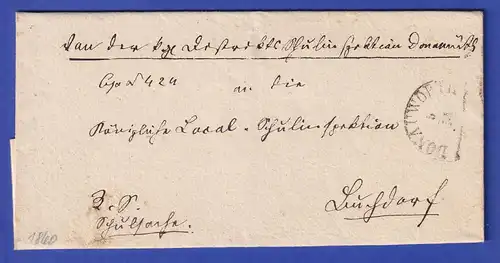 Von der kgl Distrikts Schulinspektion Donauwörth
Exp. № 424
an die
Königliche Local-Schulinspektion
DONAUWÖRTH
R. S.
Schulsache.
Buchdorf
1840